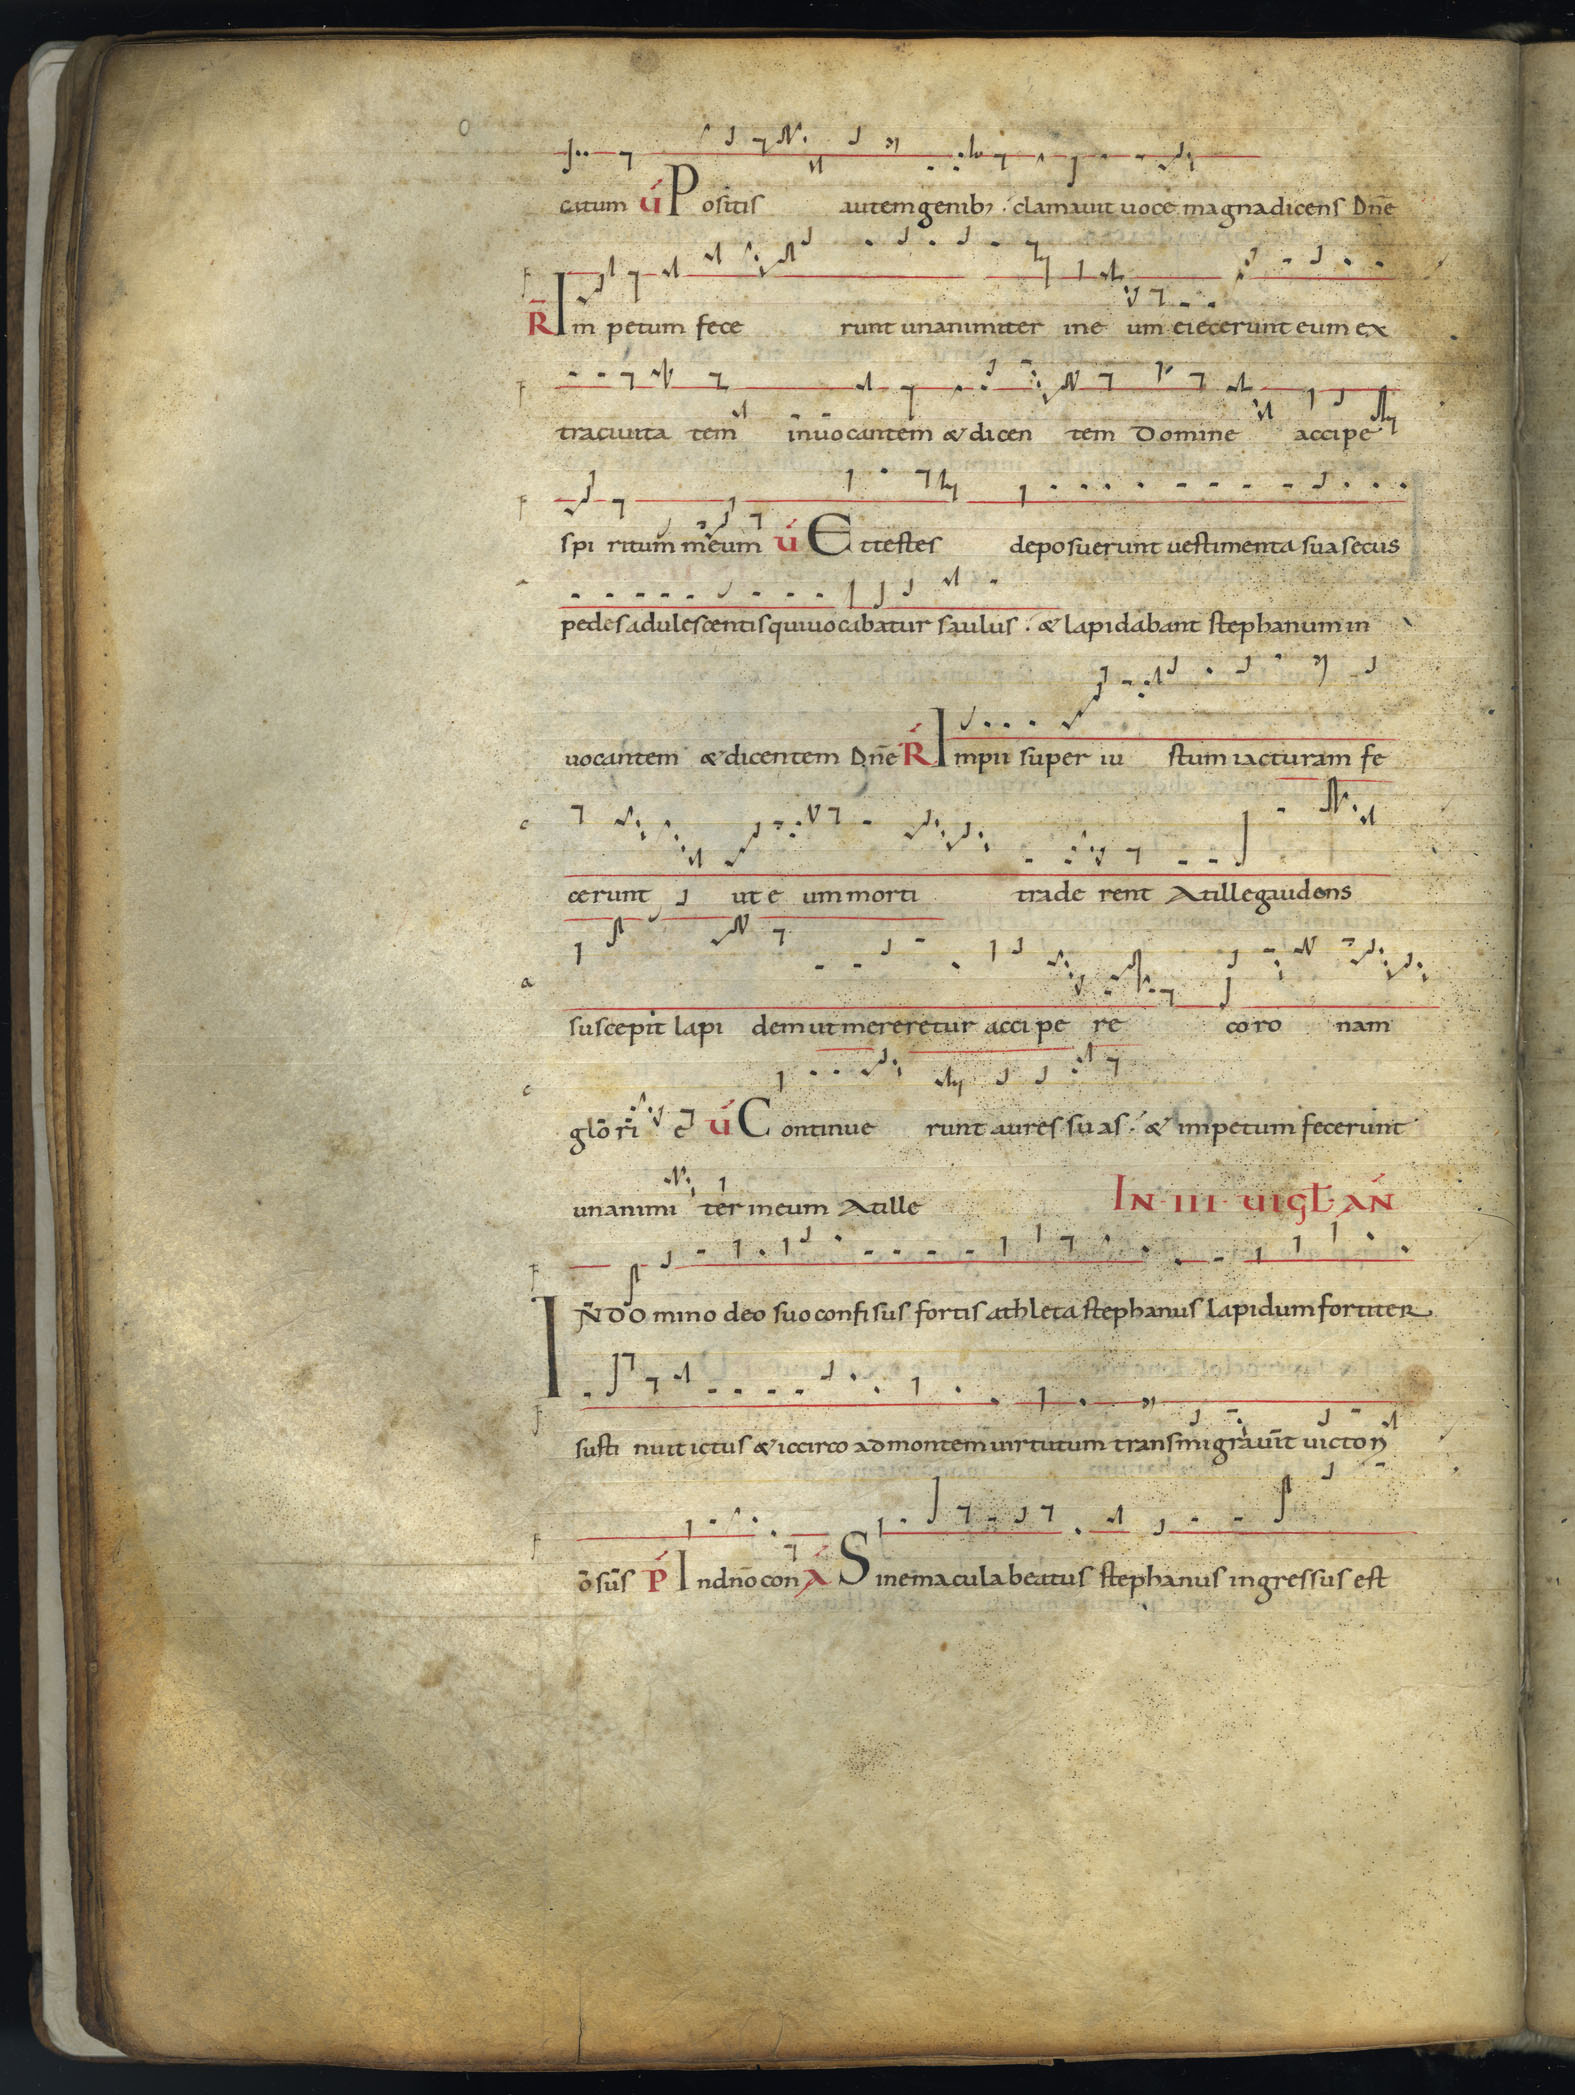 catum v́ Positis autem genib; . clamavit voce magna dicens Dn̄e
R̄ Im petum fece runt unanimiter ine um eiecerunt eum ex
tra civita tem invocantem & dicen tem Domine accipe
spi ritum meum v́ Et testes deposuerunt vestimenta sua secus
pedes adulescentis qui vocabatur saulus . & lapidabant stephanum in
vocantem & dicentem Dn̄e Ŕ Impii super iu stum iacturam fe
cerunt ut e um morti trade rent At ille gaudens
suscepit lapi dem ut mereretur accipe re coro nam
glo ri e v́ Continue runt aures suas . & impetum fecerunt
unanimi ter in eum At ille IN · III · VIGL̄ · AŃ
IN DO mino deo suo confisus fortis athleta stephanus lapidum fortiter
susti nuit ictus & iccirco ad montem virtutum transmigravit victori
osus Ṕ In dn̄o con Á Sine macula beatus stephanus ingressus est